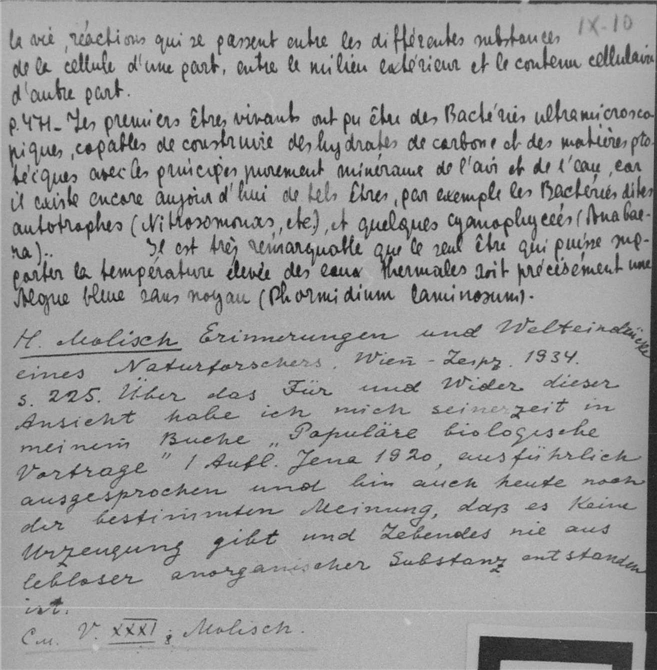 IX-10
la vie, réactions qui se passent entre les différentes substances
de la cellule d'une part, entre le milieu extérieur et le contenu cellulaire
d'autre part.
p. 471 – Les premiers êtres vivants ont pu être des Bactéries ultramicrosco-
piques, capables de construire des hydrates de carbone et des matières pro-
téiques avec les principes purement minéraux de l'air et de l'eau, car
il existe encore aujour d'hui de tels êtres, par exemple les Bactéries dites
autotrophes (Nitrosomonas, etc.), et quelques cyanophycées (Anabae-
na)... Il est très remarquable que le seul être qui puisse sup-
porter la température élevée des eaux thermales soit précisément une
Algue bleue sans noyau (Phormidium laminosum).
H. Molisch Erinnerungen und Welteindrücke
eines Naturforschers. Wien – Leipz. 1934.
s. 225. Über das Für und Wider dieser
Ansicht habe ich mich seinerzeit in
meinem Buche „Populäre biologische
Vorträge" 1 Aufl. Jena 1920, ausführlich
ausgesprochen und bin auch heute noch
der bestimmten Meinung, daß es keine
Urzeugung gibt und Lebendes nie aus
lebloser anorganischer Substanz entstanden
ist.
См. V. XXXI; Molisch.